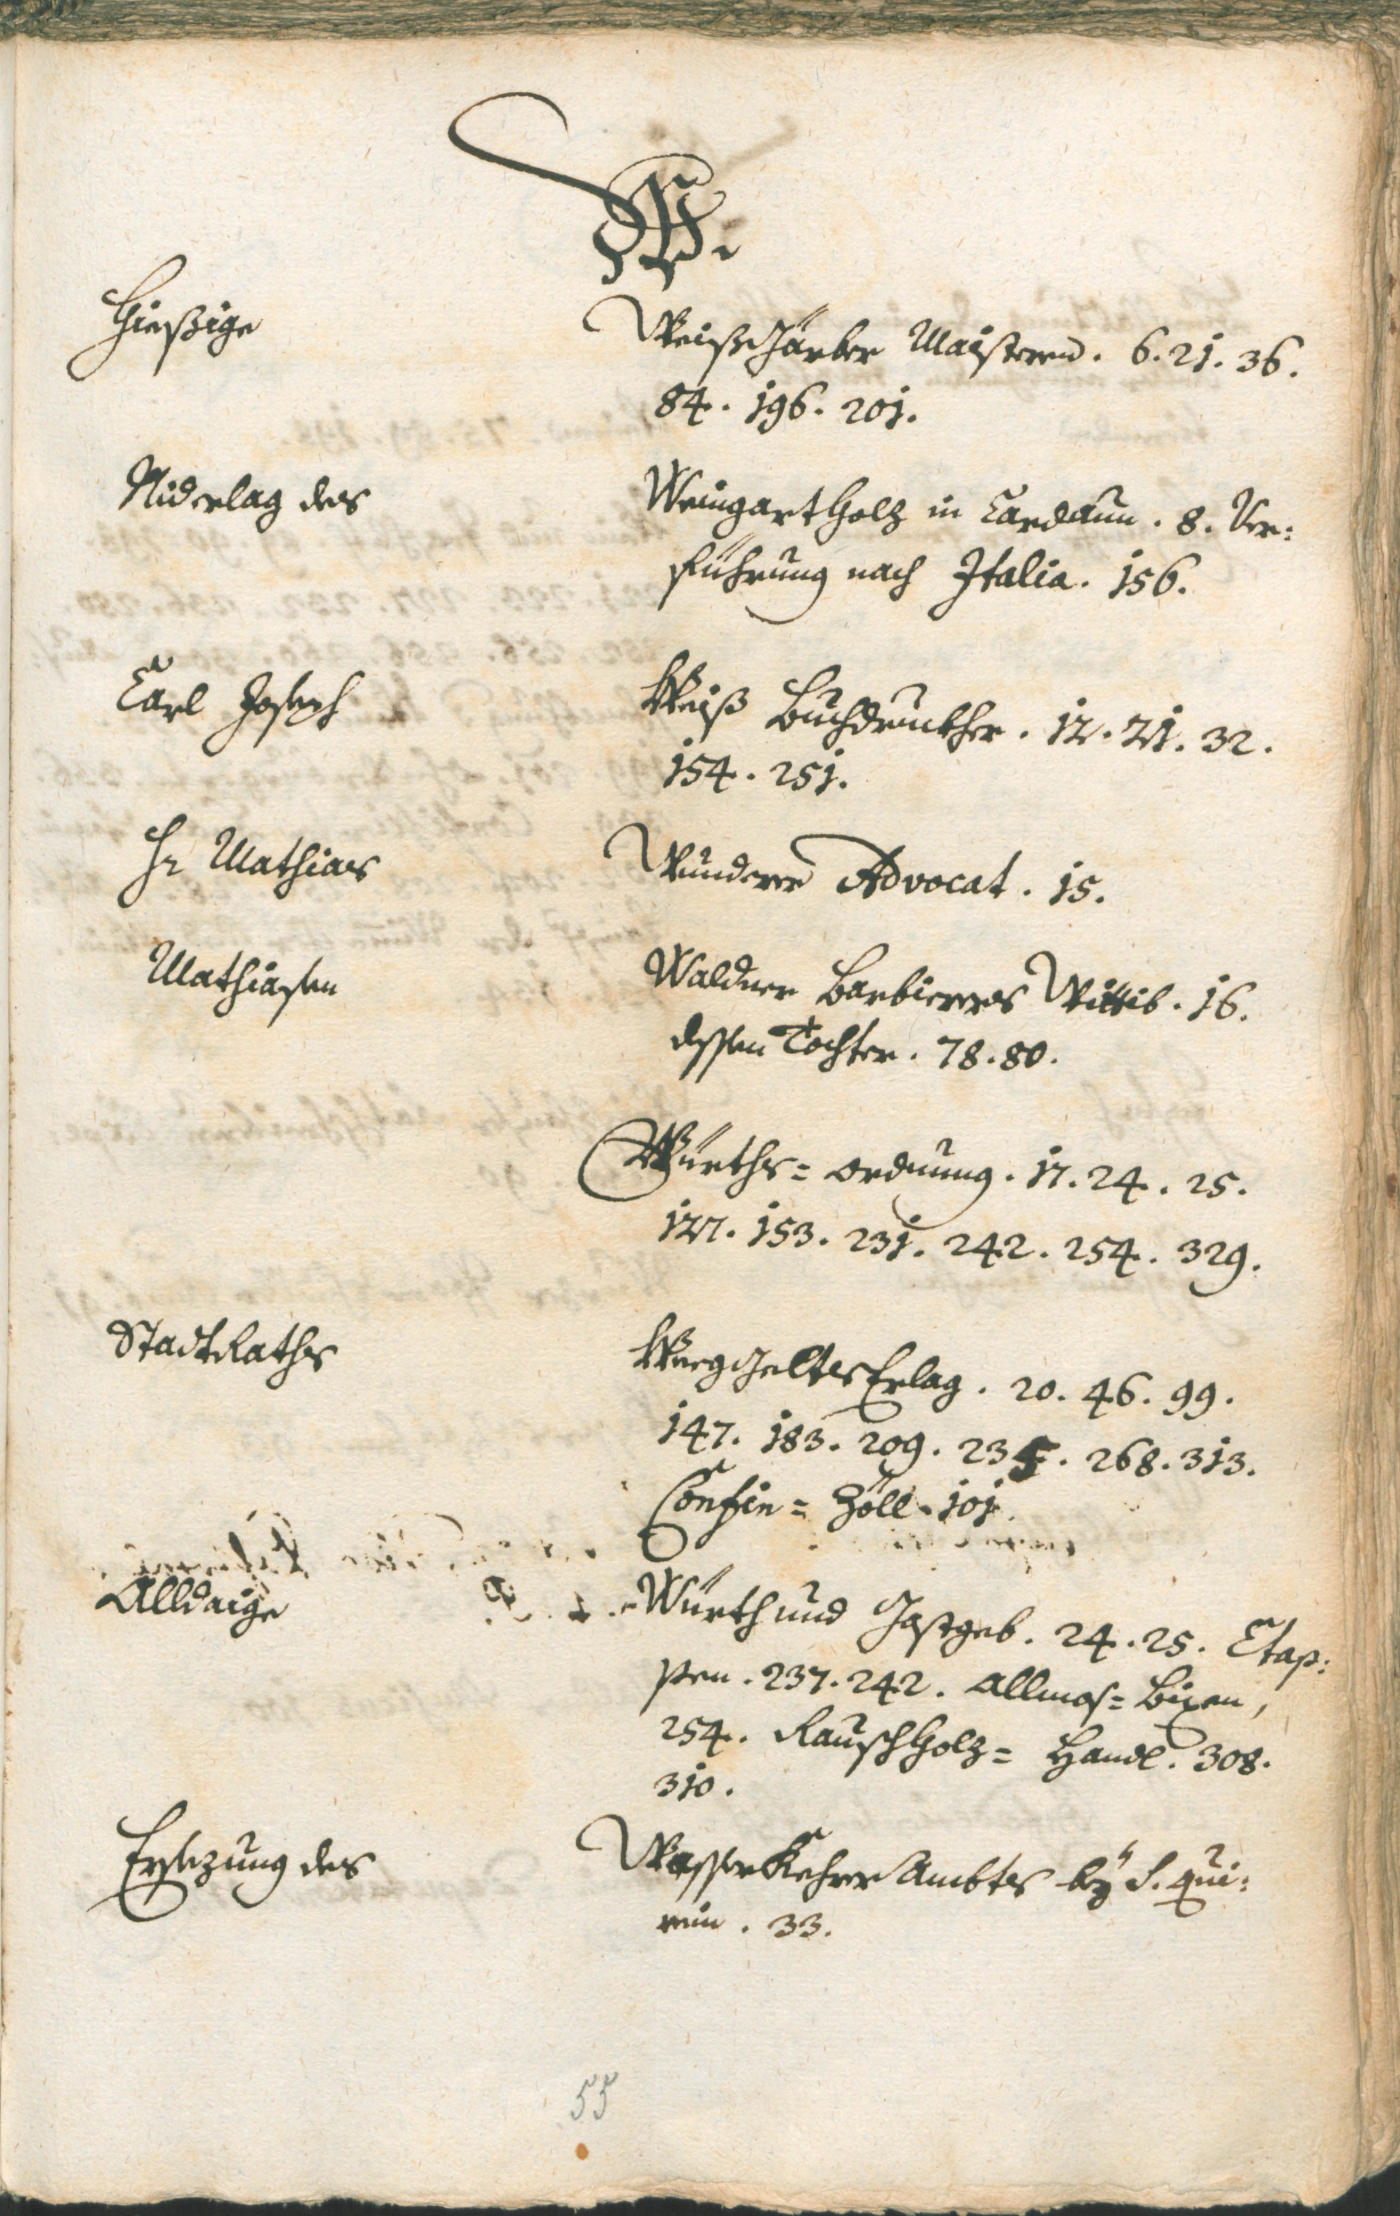 W.
Hießige Weißgärber Maistern. 6. 21. 36.
84. 196. 201.
Niderlag des Weingartholz in Cardaun. 8. Ver:
führung nach Italia. 156.
Carl Joseph Weiß Buchdruckher. 12. 21. 32.
154. 251.
Hr Mathias Wunderer Advocat. 15.
Mathiasen Waldner Barbierers Wittib. 16.
dessen Tochter. 78. 80.
Würths= ordnung. 17. 24. 25.
127. 153. 231. 242. 254. 329.
StadtRaths WeegGelts Erlag. 20. 46. 99.
147. 183. 209. 235. 268. 313.
Confin= Zöll. 101.
Alldaige Würth und Gastgeb. 24. 25. Etap:
pen. 237. 242. Allmos= Bixen,
254. Rauschholz= Handl. 308.
310.
Ersezung des WasserKehrer Ambts bey S. Qui:
rein. 33.
55